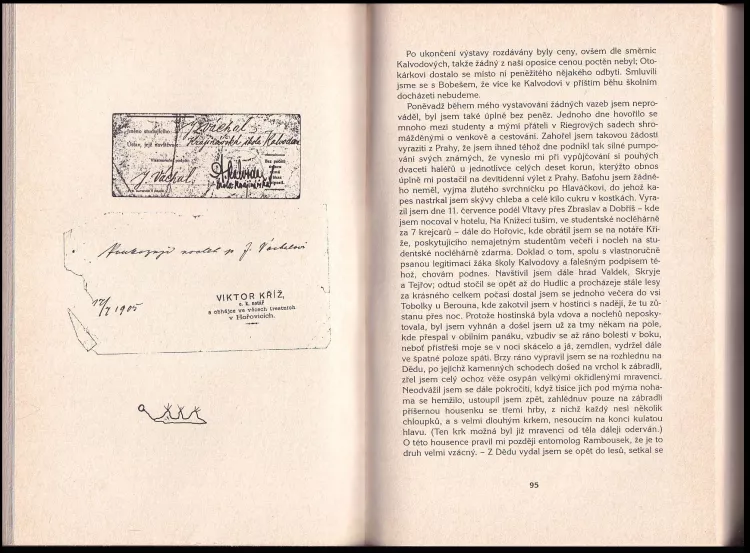 Jméno studujícího: J Váchal
Krajinářská škola Kalvodova
J Váchal
Poukazuji nocleh p. J. Váchalovi
12/7 1905
VIKTOR KŘÍŽ,
c. k. notář
a obhájce ve věcech trestních
v Hořovicích.
Po ukončení výstavy rozdávány byly ceny, ovšem dle směrnic
Kalvodových, takže žádný z naší oposice cenou poctěn nebyl; Oto-
kárkovi dostalo se místo ní peněžitého nějakého odbytí. Smluvili
jsme se s Bobešem, že více ke Kalvodovi v příštím běhu školním
docházeti nebudeme.
Poněvadž během mého vystavování žádných vazeb jsem nepro-
váděl, byl jsem také úplně bez peněz. Jednoho dne hovořilo se
mnoho mezi studenty a mými přáteli v Riegrových sadech shro-
mážděnými o venkově a cestování. Zahořel jsem takovou žádostí
vyraziti z Prahy, že jsem ihned téhož dne podnikl tak silné pumpo-
vání svých známých, že vyneslo mi při vypůjčování si pouhých
dvaceti haléřů u jednotlivce celých deset korun, kterýžto obnos
úplně mi postačil na devítidenní výlet z Prahy. Baťohu jsem žádné-
ho neměl, vyjma žlutého svrchníčku po Hlaváčkovi, do jehož ka-
pes nastrkal jsem skývy chleba a celé kilo cukru v kostkách. Vyra-
zil jsem dne 11. července podél Vltavy přes Zbraslav a Dobříš – kde
jsem nocoval v hotelu, Na Knížecí tuším, ve studentské noclehárně
za 7 krejcarů – dále do Hořovic, kde obrátil jsem se na notáře Kří-
že, poskytujícího nemajetným studentům večeři i nocleh na stu-
dentské noclehárně zdarma. Doklad o tom, spolu s vlastnoručně
psanou legitimací žáka školy Kalvodovy a falešným podpisem té-
hož, chovám podnes. Navštívil jsem dále hrad Valdek, Skryje
a Tejřov; odtud stočil se opět až do Hudlic a procházeje stále lesy
za krásného celkem počasí dostal jsem se jednoho večera do vsi
Tobolky u Berouna, kde zakotvil jsem v hostinci s nadějí, že tu zů-
stanu přes noc. Protože hostinská byla vdova a noclehů neposky-
tovala, byl jsem vyhnán a došel jsem už za tmy někam na pole,
kde přespal v obilním panáku, vzbudiv se až ráno bolestí v boku,
neboť přístřeší moje se v noci skácelo a já, zemdlen, vydržel dále
ve špatné poloze spáti. Brzy ráno vypravil jsem se na rozhlednu na
Dědu, po jejichž kamenných schodech došed na vrchol k zábradlí,
zřel jsem celý ochoz věže osypán velkými okřídlenými mravenci.
Neodvážil jsem se dále pokročiti, když tisíce jich pod mýma noha-
ma se hemžilo, ustoupil jsem zpět, zahlédnuv pouze na zábradlí
příšernou housenku se třemi hrby, z nichž každý nesl několik
chloupků, a s velmi dlouhým krkem, nesoucím na konci kulatou
hlavu. (Ten krk možná byl již mravenci od těla dáleji oderván.)
O této housence pravil mi později entomolog Rambousek, že je to
druh velmi vzácný. – Z Dědu vydal jsem se opět do lesů, setkal se
95